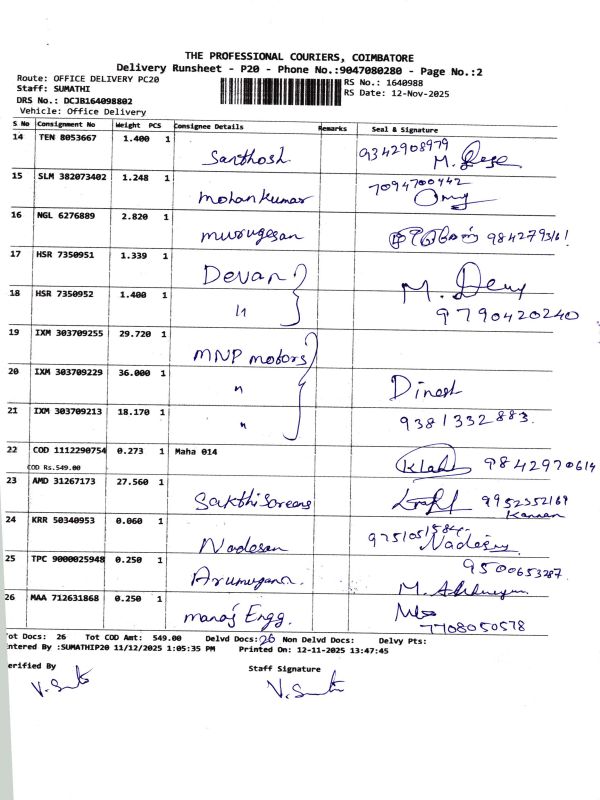 THE PROFESSIONAL COURIERS, COIMBATORE
Delivery Runsheet - P20 - Phone No.:9047080280 - Page No.:2
Route: OFFICE DELIVERY PC20
RS No.: 1640988
Staff: SUMATHI
RS Date: 12-Nov-2025
DRS No.: DCJB164098802
Vehicle: Office Delivery
S No Consignment No Weight PCS Consignee Details Remarks Seal & Signature
14 TEN 8053667 1.400 1 Santhosh 9342908979
15 SLM 382073402 1.248 1 mohankumar 7094700442
16 NGL 6276889 2.820 1 murugesan 9842793161
17 HSR 7350951 1.339 1 Devan M. Deny
18 HSR 7350952 1.400 1 " 9790420240
19 IXM 303709255 29.720 1 MNP motors
20 IXM 303709229 36.000 1 " Dinesh
21 IXM 303709213 18.170 1 " 9381332883.
22 COD 1112290754 0.273 1 Maha 014 9842970614
COD Rs.549.00
23 AMD 31267173 27.560 1 Sakthi Screens 9952352169
Kannan
24 KRR 50340953 0.060 1 Nadesan 9751051584
25 TPC 9000025948 0.250 1 Arumugam. 9500653287
26 MAA 712631868 0.250 1 manoj Engg. 7708050578
Tot Docs: 26 Tot COD Amt: 549.00 Delvd Docs: 26 Non Delvd Docs: Delvy Pts:
ntered By :SUMATHIP20 11/12/2025 1:05:35 PM Printed On: 12-11-2025 13:47:45
erified By Staff Signature